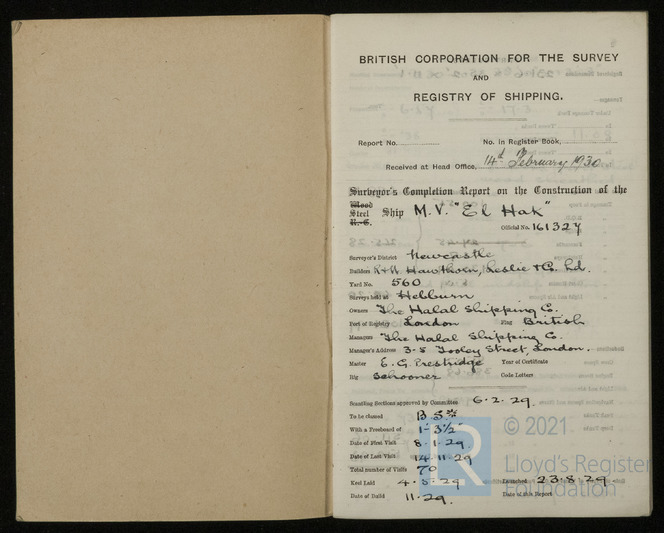 BRITISH CORPORATION FOR THE SURVEY
AND
REGISTRY OF SHIPPING.
Report No. No. in Register Book,
Received at Head Office, 14th February 1930
Surveyor's Completion Report on the Construction of the
Wood
Steel Ship M.V. "El Hak"
R.-C.
Official No. 161324
Surveyor's District Newcastle
Builders R & W. Hawthorn, Leslie & Co. Ld.
Yard No. 560
Surveys held at Hebburn
Owners The Halal Shipping Co.
Port of Registry London Flag British
Managers The Halal Shipping Co.
Manager's Address 3-5 Tooley Street, London.
Master E. G. Prestridge Year of Certificate
Rig Schooner Code Letters
Scantling Sections approved by Committee 6.2.29.
To be classed B.S.*
With a Freeboard of 1'-3½"
Date of First Visit 8.1.29.
Date of Last Visit 14.11.29
Total number of Visits 70
Keel Laid 4.5.29 Launched 23.8.29
Date of Build 11.29. Date of this Report
LR © 2021
Lloyd's Register
Foundation